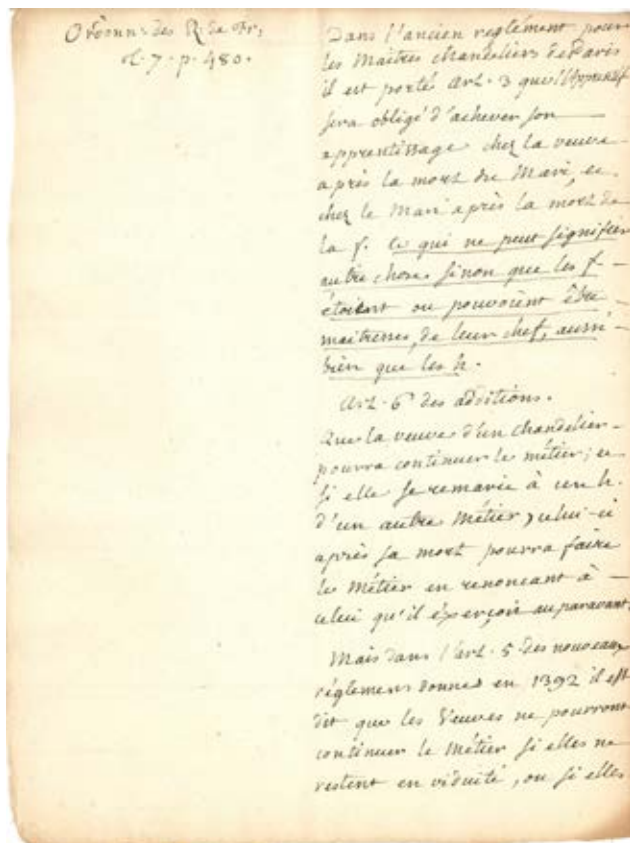 Ordonn. des R. de Fr.
t. 7. p. 480.
Dans l'ancien reglément pour
les Maitres chandeliers de Paris
il est porté Art. 3 que l'Apprentif
sera obligé d'achever son
apprentissage chez la veuve
après la mort du Mari, et
chez le Mari après la mort de
la f. ce qui ne peut signifier
autre chose sinon que les f.
étoient ou pouvoient être
maitresses, de leur chef, aussi
bien que les h.
Art. 6 des additions.
Que la veuve d'un chandelier
pourra continuer le métier; et
si elle se remarie à un h.
d'un autre Métier, celui-ci
après sa mort pourra faire
le Métier en renoncant à
celui qu'il éxerçoit auparavant.
Mais dans l'art. 5 des nouveaux
réglemens donnés en 1392 il est
dit que les Veuves ne pourront
continuer le Métier si elles ne
restent en viduité, ou si elles